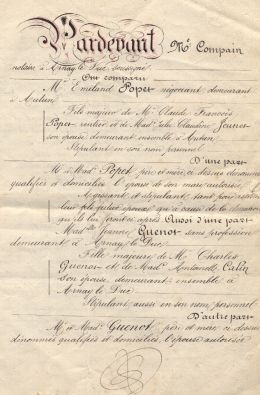 Pardevant Me Compain
notaire à Arnay le Duc, soussigné
Ont comparu
Mr Emiland Popet négociant demeurant
à Autun
Fils majeur de Mr Claude François
Popet rentier et de Made Claudine Jeunot
son épouse demeurant ensemble à Autun
Stipulant en son nom personnel
D'une part
Mr & Made Popet, père et mère, ci dessus dénommés
qualifiés & domiciliés, l'épouse de son mari autorisée
Agissant et stipulant, sans
à cause de la donation
qu'ils lui feront ci après Aussi d'une part
Madlle Jeanne Guenot sans profession
demeurant à Arnay le Duc
Fille majeure de Mr Charles
Guenot et de Made Antoinette
son épouse demeurant ensemble à
Arnay le Duc
Stipulant aussi en son nom personnel
D'autre part
Mr & Made Guenot, père et mère ci dessus
dénommés qualifiés et domiciliés, l'épouse autorisée